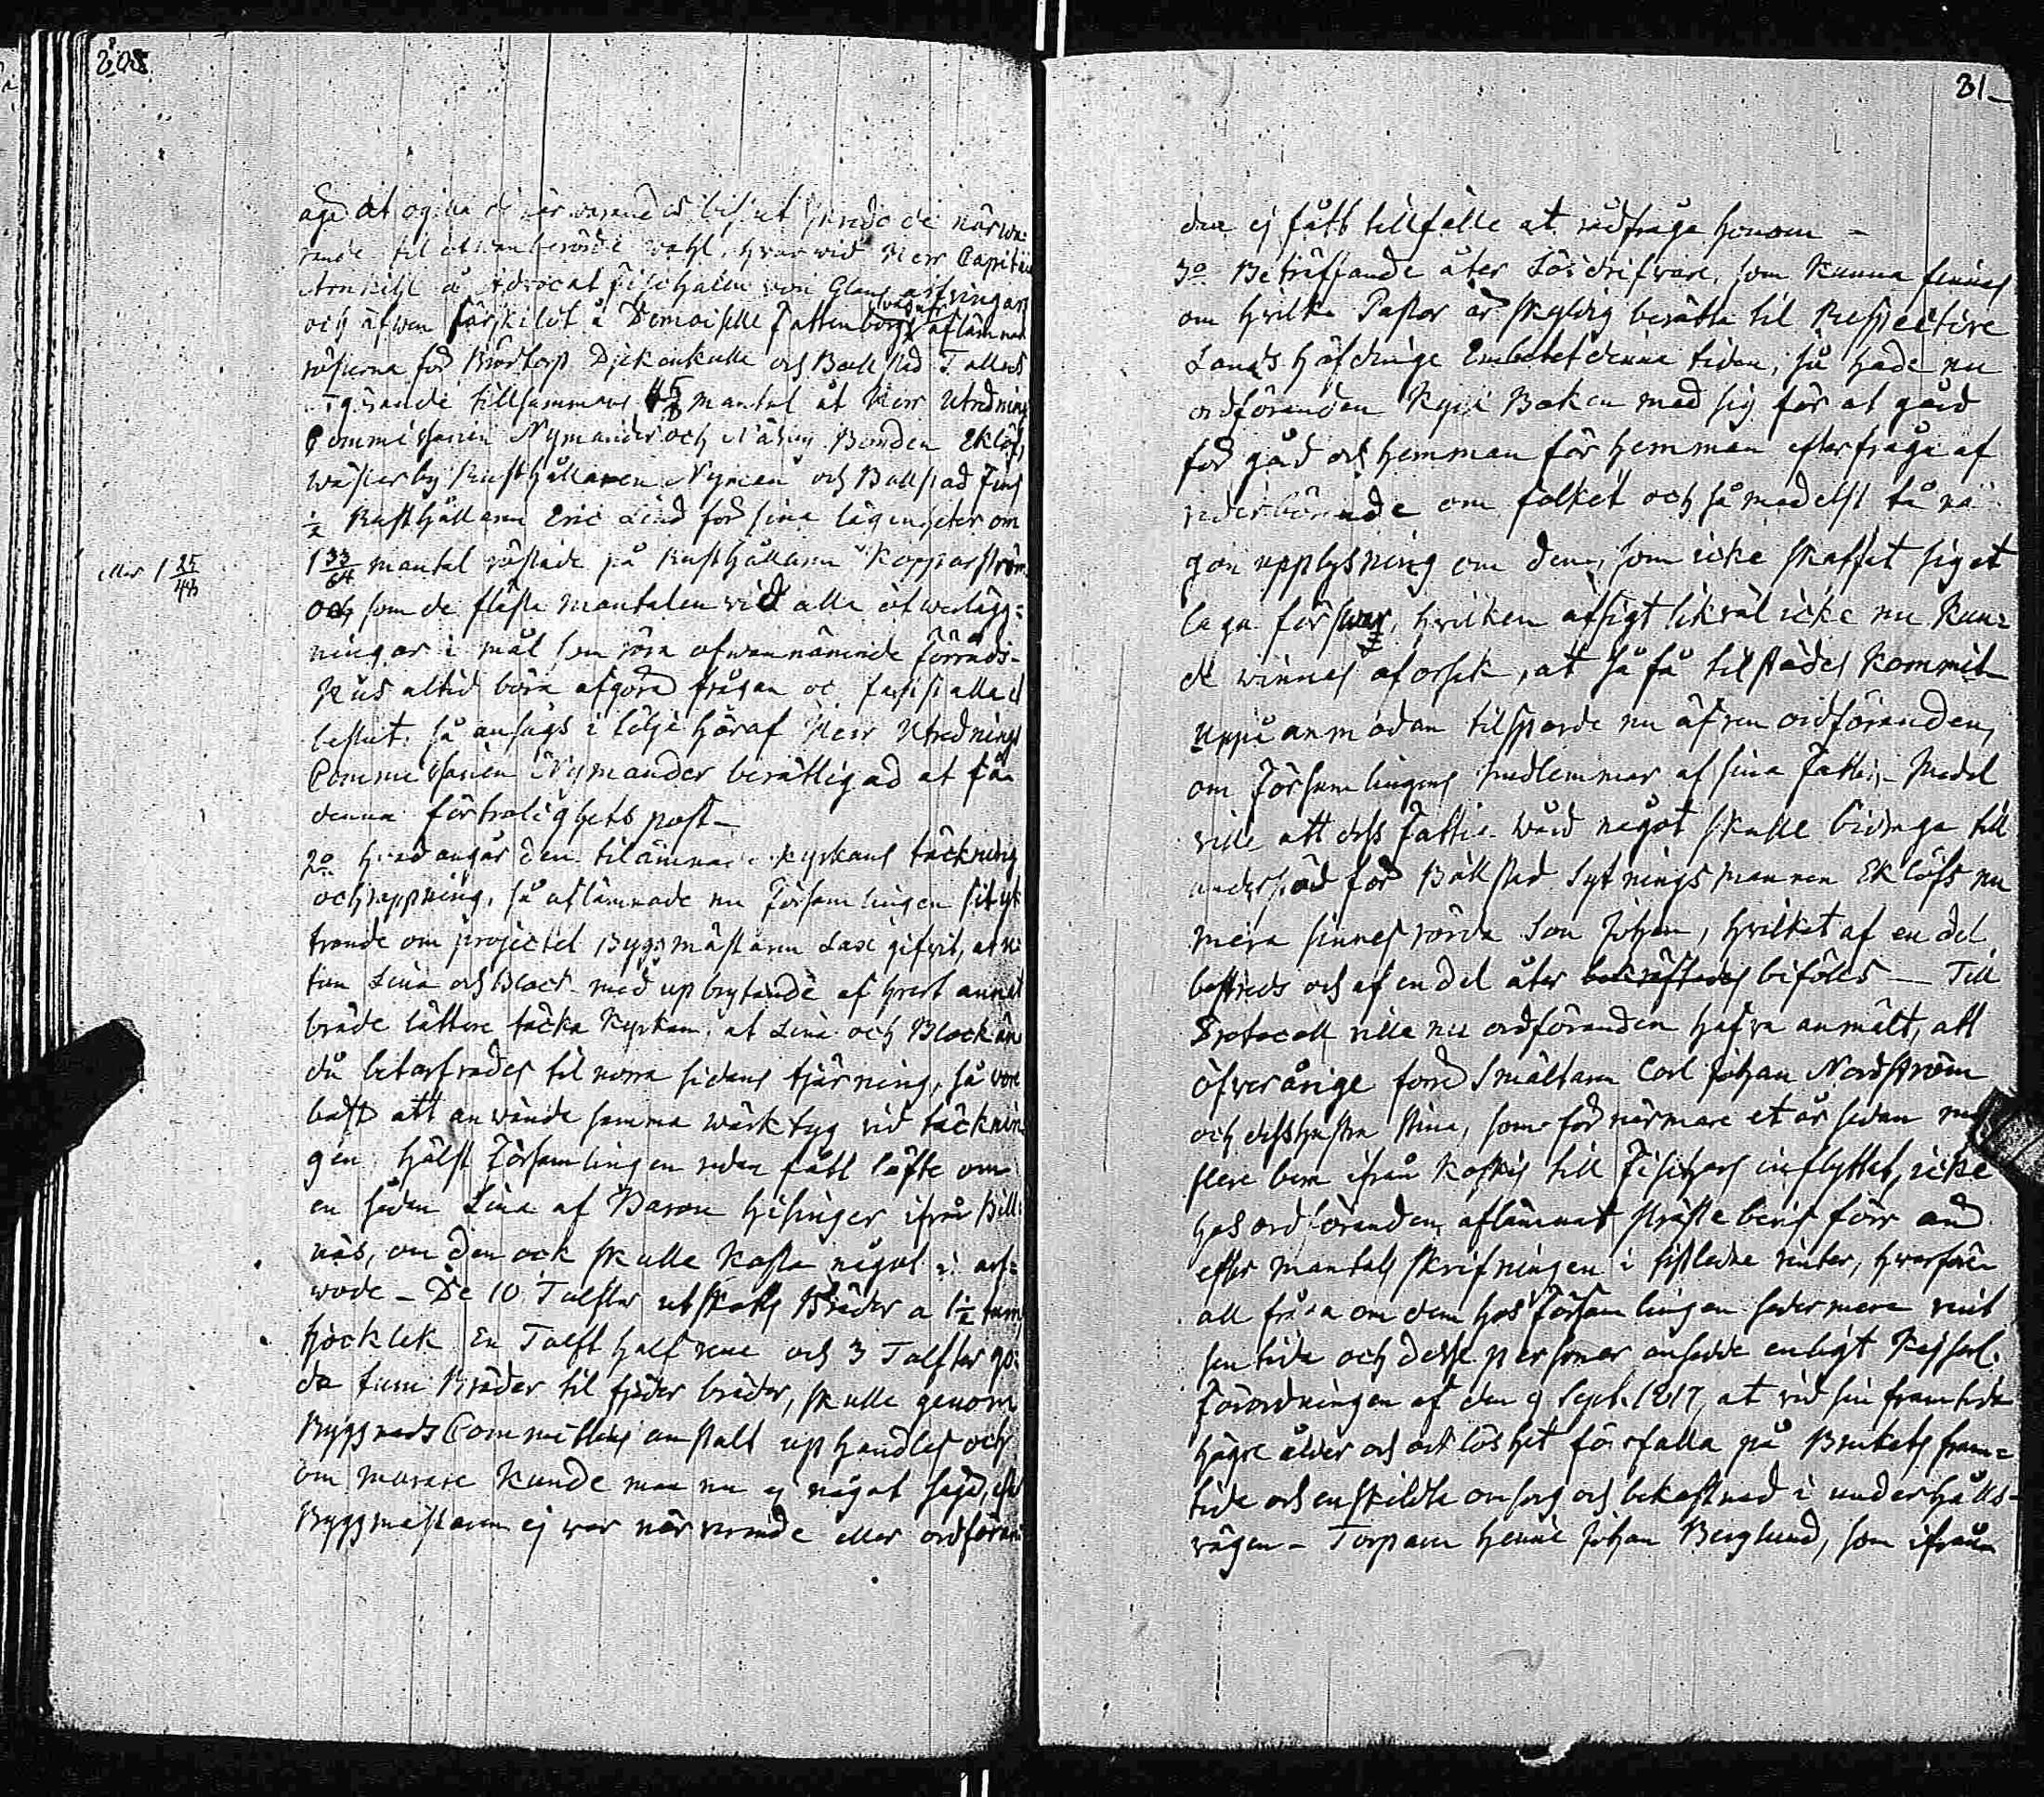 208
äga at ogilla de närvarandes beslut skredo de närwa-
rande til ofvanberörde wahl, hvarvid Herr Capitain
Arnkihl å Advocat fiscalen von Glans arfvingars
vägnar
och äfwen särskildt å Demoiselle Fattenborgs aflämnade
rösterna för Brödtorp Djekenkulle och Ballstad Tallnäs
utgörande tillsammans mantal åt Herr Utrednings
Commissarien Nymander och Näsby Bonden Eklöf,
Wästerby Rusthållaren Nyman och Ballstad Fins
1/2 Rusthållaren Eric Lind för sina lägenheter om
eller 1 25/48
1 33/64 mantal röstade på Rusthållaren Kopparström
och som de flästa mantalen vid alla öfwerlägg-
ningar i mål som röra ofwannämnde Förråds-
hus altid böra afgöra frågan och fastställa
beslut, så ansågs i följe häraf Herr Utrednings
Commissarien Nymander berättigad at få
denna förtrolighets post –
2o Hvad angår den tilämnade kyrkans täckning
och rappning, så aflämnade nu Församlingen sit yt-
trande om projectet Byggmästaren Lax gifvit, at u-
tan Lina och Block med upbrytande af hvart annat
bräde lättare täcka kyrkan, at Lina och Block än-
då betarfvades til norra sidans tjärning, så vore
bäst att anwända samma wärktyg vid täcknin-
gen, hälst Församlingen redan fått löfte om
en sådan Lina af Baron Hisinger ifrån Bill-
näs, om den ock skulle kosta något i arf-
wode – De 10 Tolfter utskotts Bräder a 1 1/2 tums
tjocklek En Tolft half rena och 3 Tolfter go-
da furu Bräder til fjäder bräder, skulle genom
Byggnads Committens anstalt uphandlas och
om murare kunde man nu ej något säga, efter
Byggmästaren ej war närvarande eller ordföran-
31
den ej fått tillfälle at rådfråga honom –
3o Beträffande åter Lösdrifvare, som kunna finnas
om hvilka Pastor är skyldig berätta til Respective
Lands Höfdinge Embetet denna tiden, så hade nu
ordföranden Kyrk Boken med sig för at gård
för gård och hemman för hemman efterfråga af
vederbörande om folket och såmedelst få nå-
gon upplysning om dem, som icke skaffat sig et
laga försvar, hvilken afsigt likväl icke nu kun-
de winnas af orsak, at så få tilstädes kommit
Uppå anmodan tilsporde nu äfven ordföranden,
om Församlingens medlemmar af sina Fattig-Medel
ville att dess Fattig-wård något skulle bidraga till
understöd för Ballstad Sytningsmannen Eklöfs nu
mera sinnesrörda Son Johan, hvilket af en del
bestreds och af en del åter bekräftades biföles – Till
Protocoll ville nu ordföranden hafva anmält, att
öfverårige förre Smältaren Carl Johan Nordström
och dess hustru Stina, som för närmare et år sedan med
flere barn ifrån Koskis till Fiskars inflyttat, icke
hos ordföranden aflämnat präste bevis förr än
efter mantals skrifningen i sistledne vinter, hvarföre
all fråga om dem hos Församlingen sedermera varit
sen tida och desse personer ansedde enligt Kejserl.
Förordningen af den 9 Sept. 1817, at vid sin framtida
högre ålder och orklöshet förfalla på Brukets fram-
tida och enskildta omsorg och bekostnad i underhålls-
vägen – Torparen Henric Johan Berglund, som ifrån